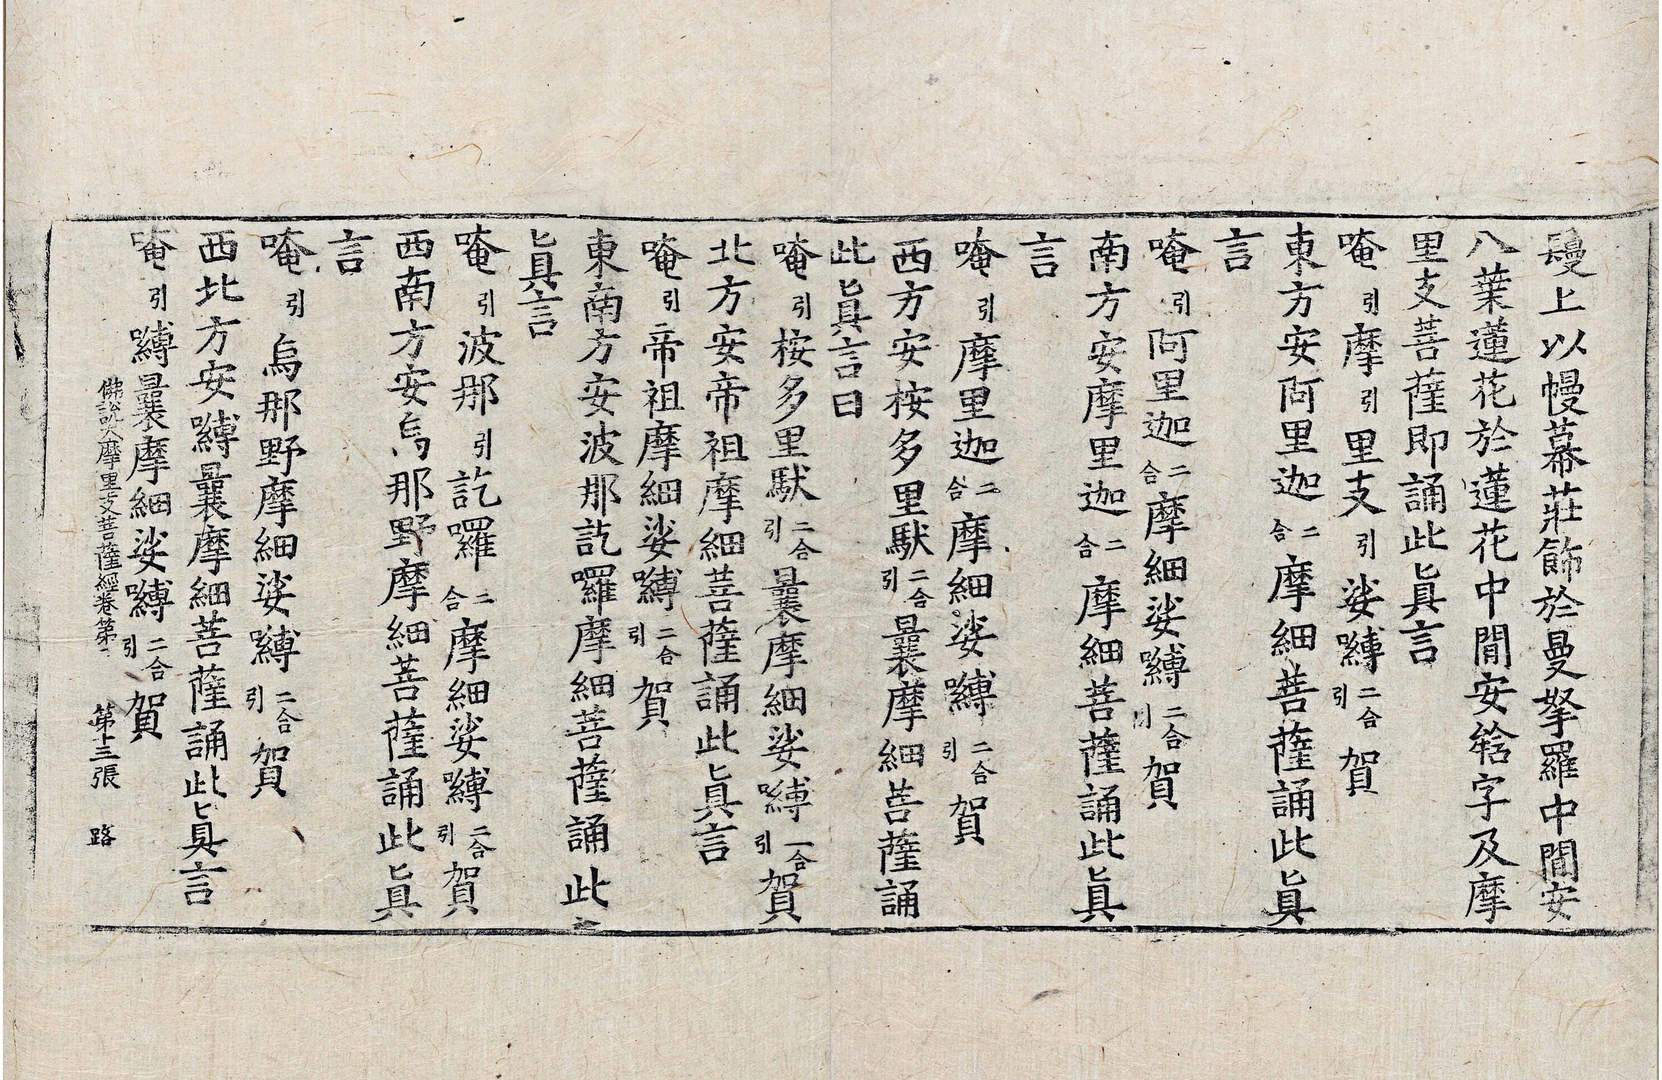 鬘上以幔幕莊飾於曼拏羅中間安
八葉蓮花於蓮花中間安 字及摩
里支菩薩即誦此眞言
唵引摩引里支引娑嚩二合引賀
東方安阿里迦二合摩細菩薩誦此眞
言
唵引阿里迦二合摩細娑嚩二合引賀
南方安摩里迦二合摩細菩薩誦此眞
言
唵引摩里迦二合摩細娑嚩二合引賀
西方安桉多里馱二合引曩摩細菩薩誦
此眞言曰
唵引桉多里馱二合引曩摩細娑嚩二合引賀
北方安帝祖摩細菩薩誦此眞言
唵引帝祖摩細娑嚩二合引賀
東南方安波那訖囉摩細菩薩誦此
眞言
唵引波那引訖囉二合摩細娑嚩二合引賀
西南方安烏那野摩細菩薩誦此眞
言
唵引烏那野摩細娑嚩二合引賀
西北方安嚩曩摩細菩薩誦此眞言
唵引嚩曩摩細娑嚩二合引賀
佛說大摩里支菩薩經卷第一 第十三張 路